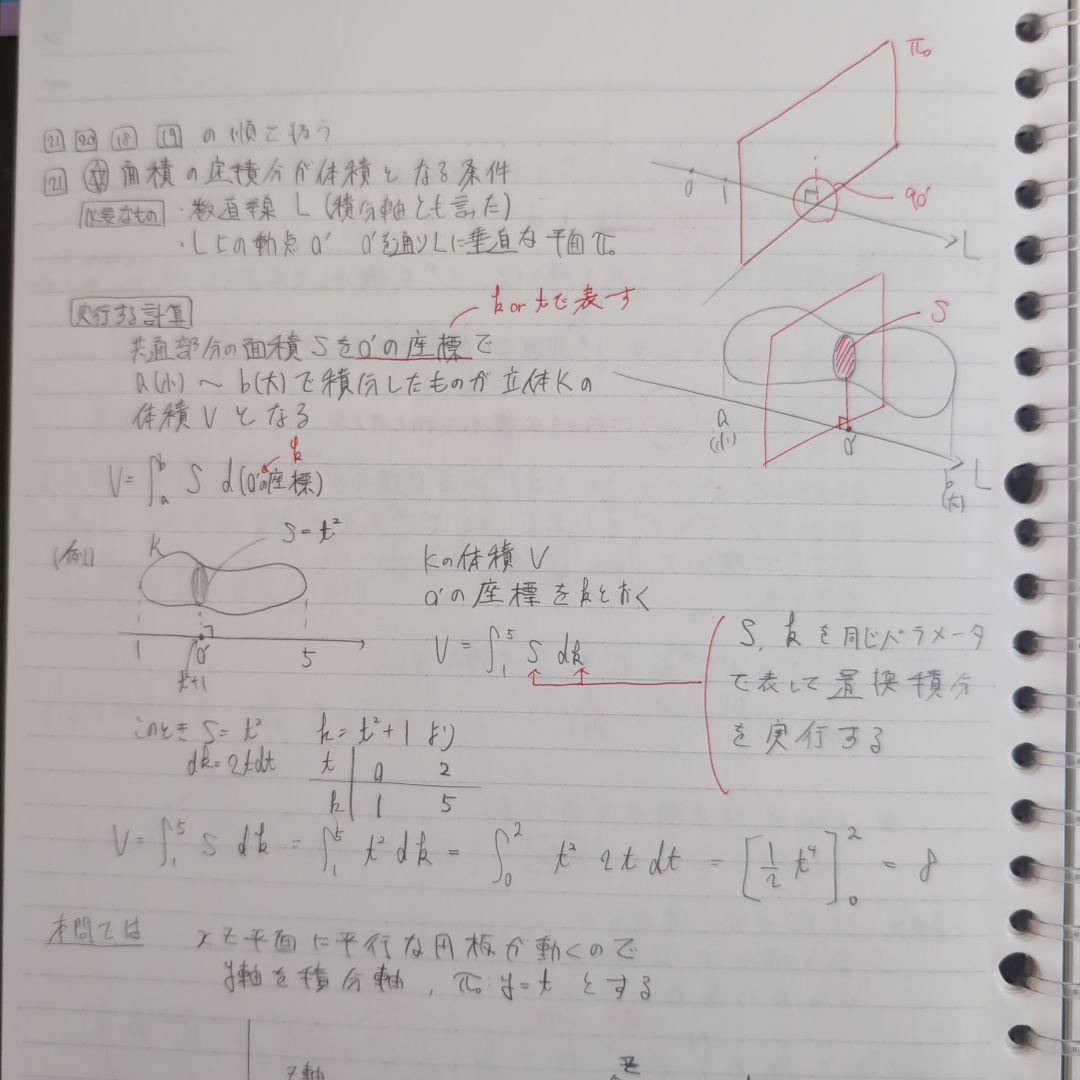 21 20 18 19 の順で扱う
21 ㊥ 面積の定積分が体積となる条件
必要なもの ・数直線 L (積分軸とも言った)
・L上の動点 O' O'を通りLに垂直な平面π₀
π₀
0 1
90°
L
実行する計算
k or tで表す
共通部分の面積SをO'の座標で
a(小)～b(大)で積分したものが立体Kの
体積Vとなる
V=∫ₐᵇ S d(O'の座標)
k
S
a
(小)
O'
b
(大)
L
(例)
K
S=t²
1 O' 5
t²+1
Kの体積V
O'の座標をkとおく
V=∫₁⁵ S dk
S, kを同じパラメータ
で表して置換積分
を実行する
このとき S=t² k=t²+1 より
dk=2tdt
t 0 2
k 1 5
V=∫₁⁵ S dk = ∫₁⁵ t² dk = ∫₀² t² 2t dt = [1/2 t⁴]₀² = 8
本問では xz平面に平行な円板が動くので
y軸を積分軸, π₀: y=t とする
z軸